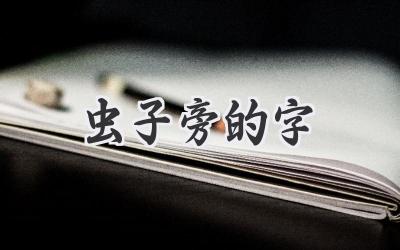 虫子旁的字